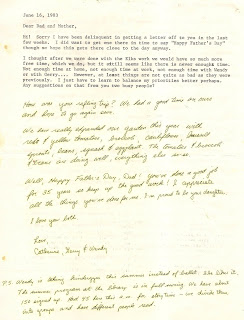 June 16, 1983
Dear Dad and Mother,
Hi! Sorry I have been delinquent in getting a letter off to you in the last
few weeks. I did want to get one there in time to say "Happy Father's Day"
though so hope this gets there close to the day anyway.
I thought after we were done with the Nike work we would have so much more
free time, which we do, but it still seems like there is never enough time.
Not enough time at home, not enough time at work, not enough time with Wendy
or with Gerry.... However, at least things are not quite as bad as they were
previously. I just have to learn to balance my priorities better perhaps.
Any suggestions on that from you two busy people?
How was your rafting trip? We had a good time on ours
and hope to go again soon.
We have really expanded our garden this year with
red & yellow tomatoes, broccoli, cauliflower, brussel
sprouts, beans, squash & eggplant. The tomatoes & broccoli
& beans are doing well, everything else so-so.
Well, Happy Father's Day, Dad! You've done a good job
for 35 years so keep up the good work! I appreciate
all the things you've done for me. I'm proud to be your daughter.
I love you both.
Love,
Catherine, Gerry & Wendy
P.S. Wendy is taking this summer instead of ballet. She likes it.
The summer program at the library is in full swing. We have about
150 signed up. Had 55 kids this a.m. for storytime — we divide them
into groups and have different people read.